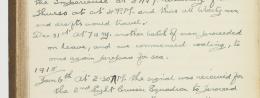 Thursd at at 2 P.M. and thus all liberty men
and drafts would travel.
Dec 31st at 7 a.m. another batch of men proceeded
on leave, and we commenced coaling, to
once again prepare for sea.
1915
Jan 6th at 2-30 P.M. the signal was received for
the 2nd Light Cruiser Squadron to proceed